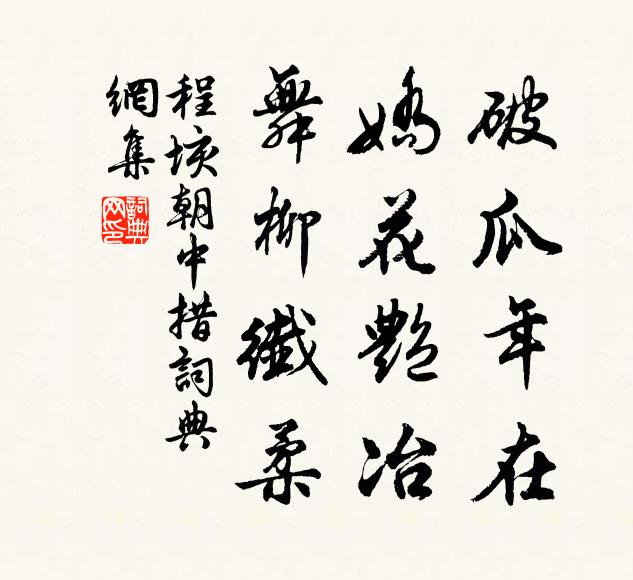 破瓜年在
嬌花艷冶
舞柳纖柔
程垓朝中措詞典
網集
詞典
网印